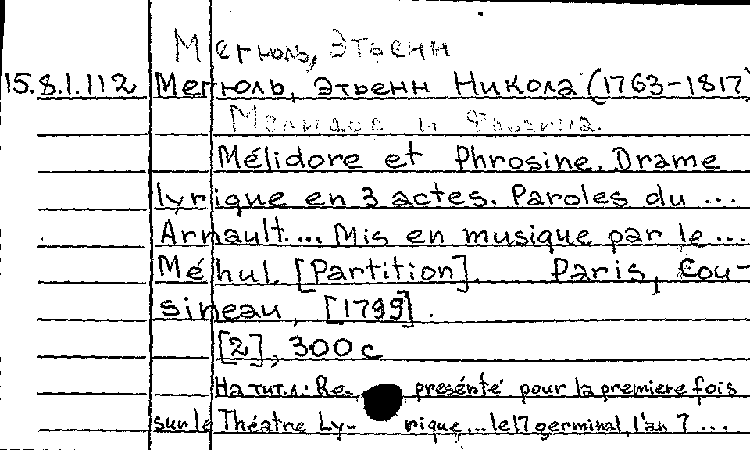 Мегюль, Этьенн
15.8.1.112 Мегюль, Этьенн Никола (1763-1817)
Мелидор и Фрозина.
Mélidore et Phrosine. Drame
lyrique en 3 actes. Paroles du ...
Arnault.... Mis en musique par le ...
Méhul. [Partition]. Paris, Cou-
sineau, [1799].
[2], 300 с
На тит.л.: Re- presénté pour la premiere fois
sur le Théatre Ly- rique... le 17 germinal, l'an 7 ...